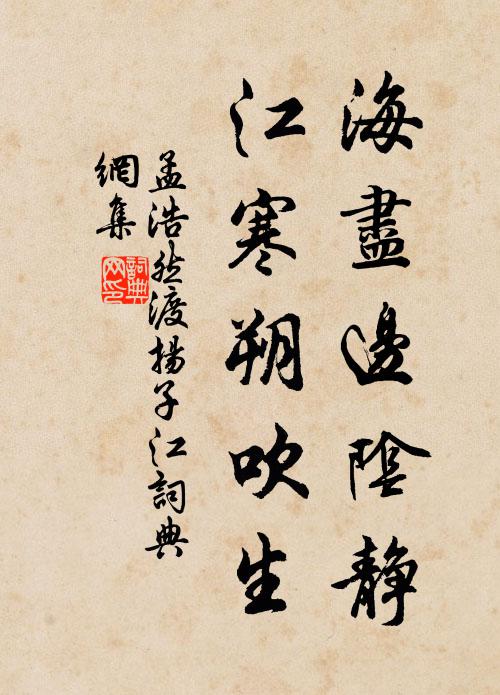 海盡邊陰靜
江寒朔吹生
孟浩然渡揚子江詞典
網集
詞典網印